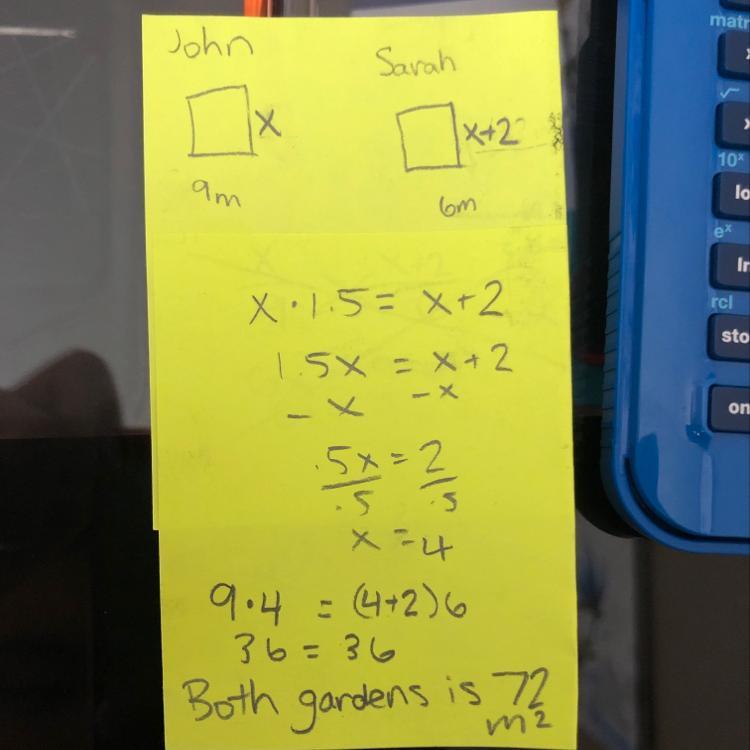 John
Sarah
x
x+2
9m
6m
x·1.5= x+2
1.5x = x+2
-x -x
.5x = 2
.5 .5
x = 4
9·4 = (4+2)6
36 = 36
Both gardens is 72
m²
matr
√
10ˣ
lo
eˣ
ln
rcl
sto
on